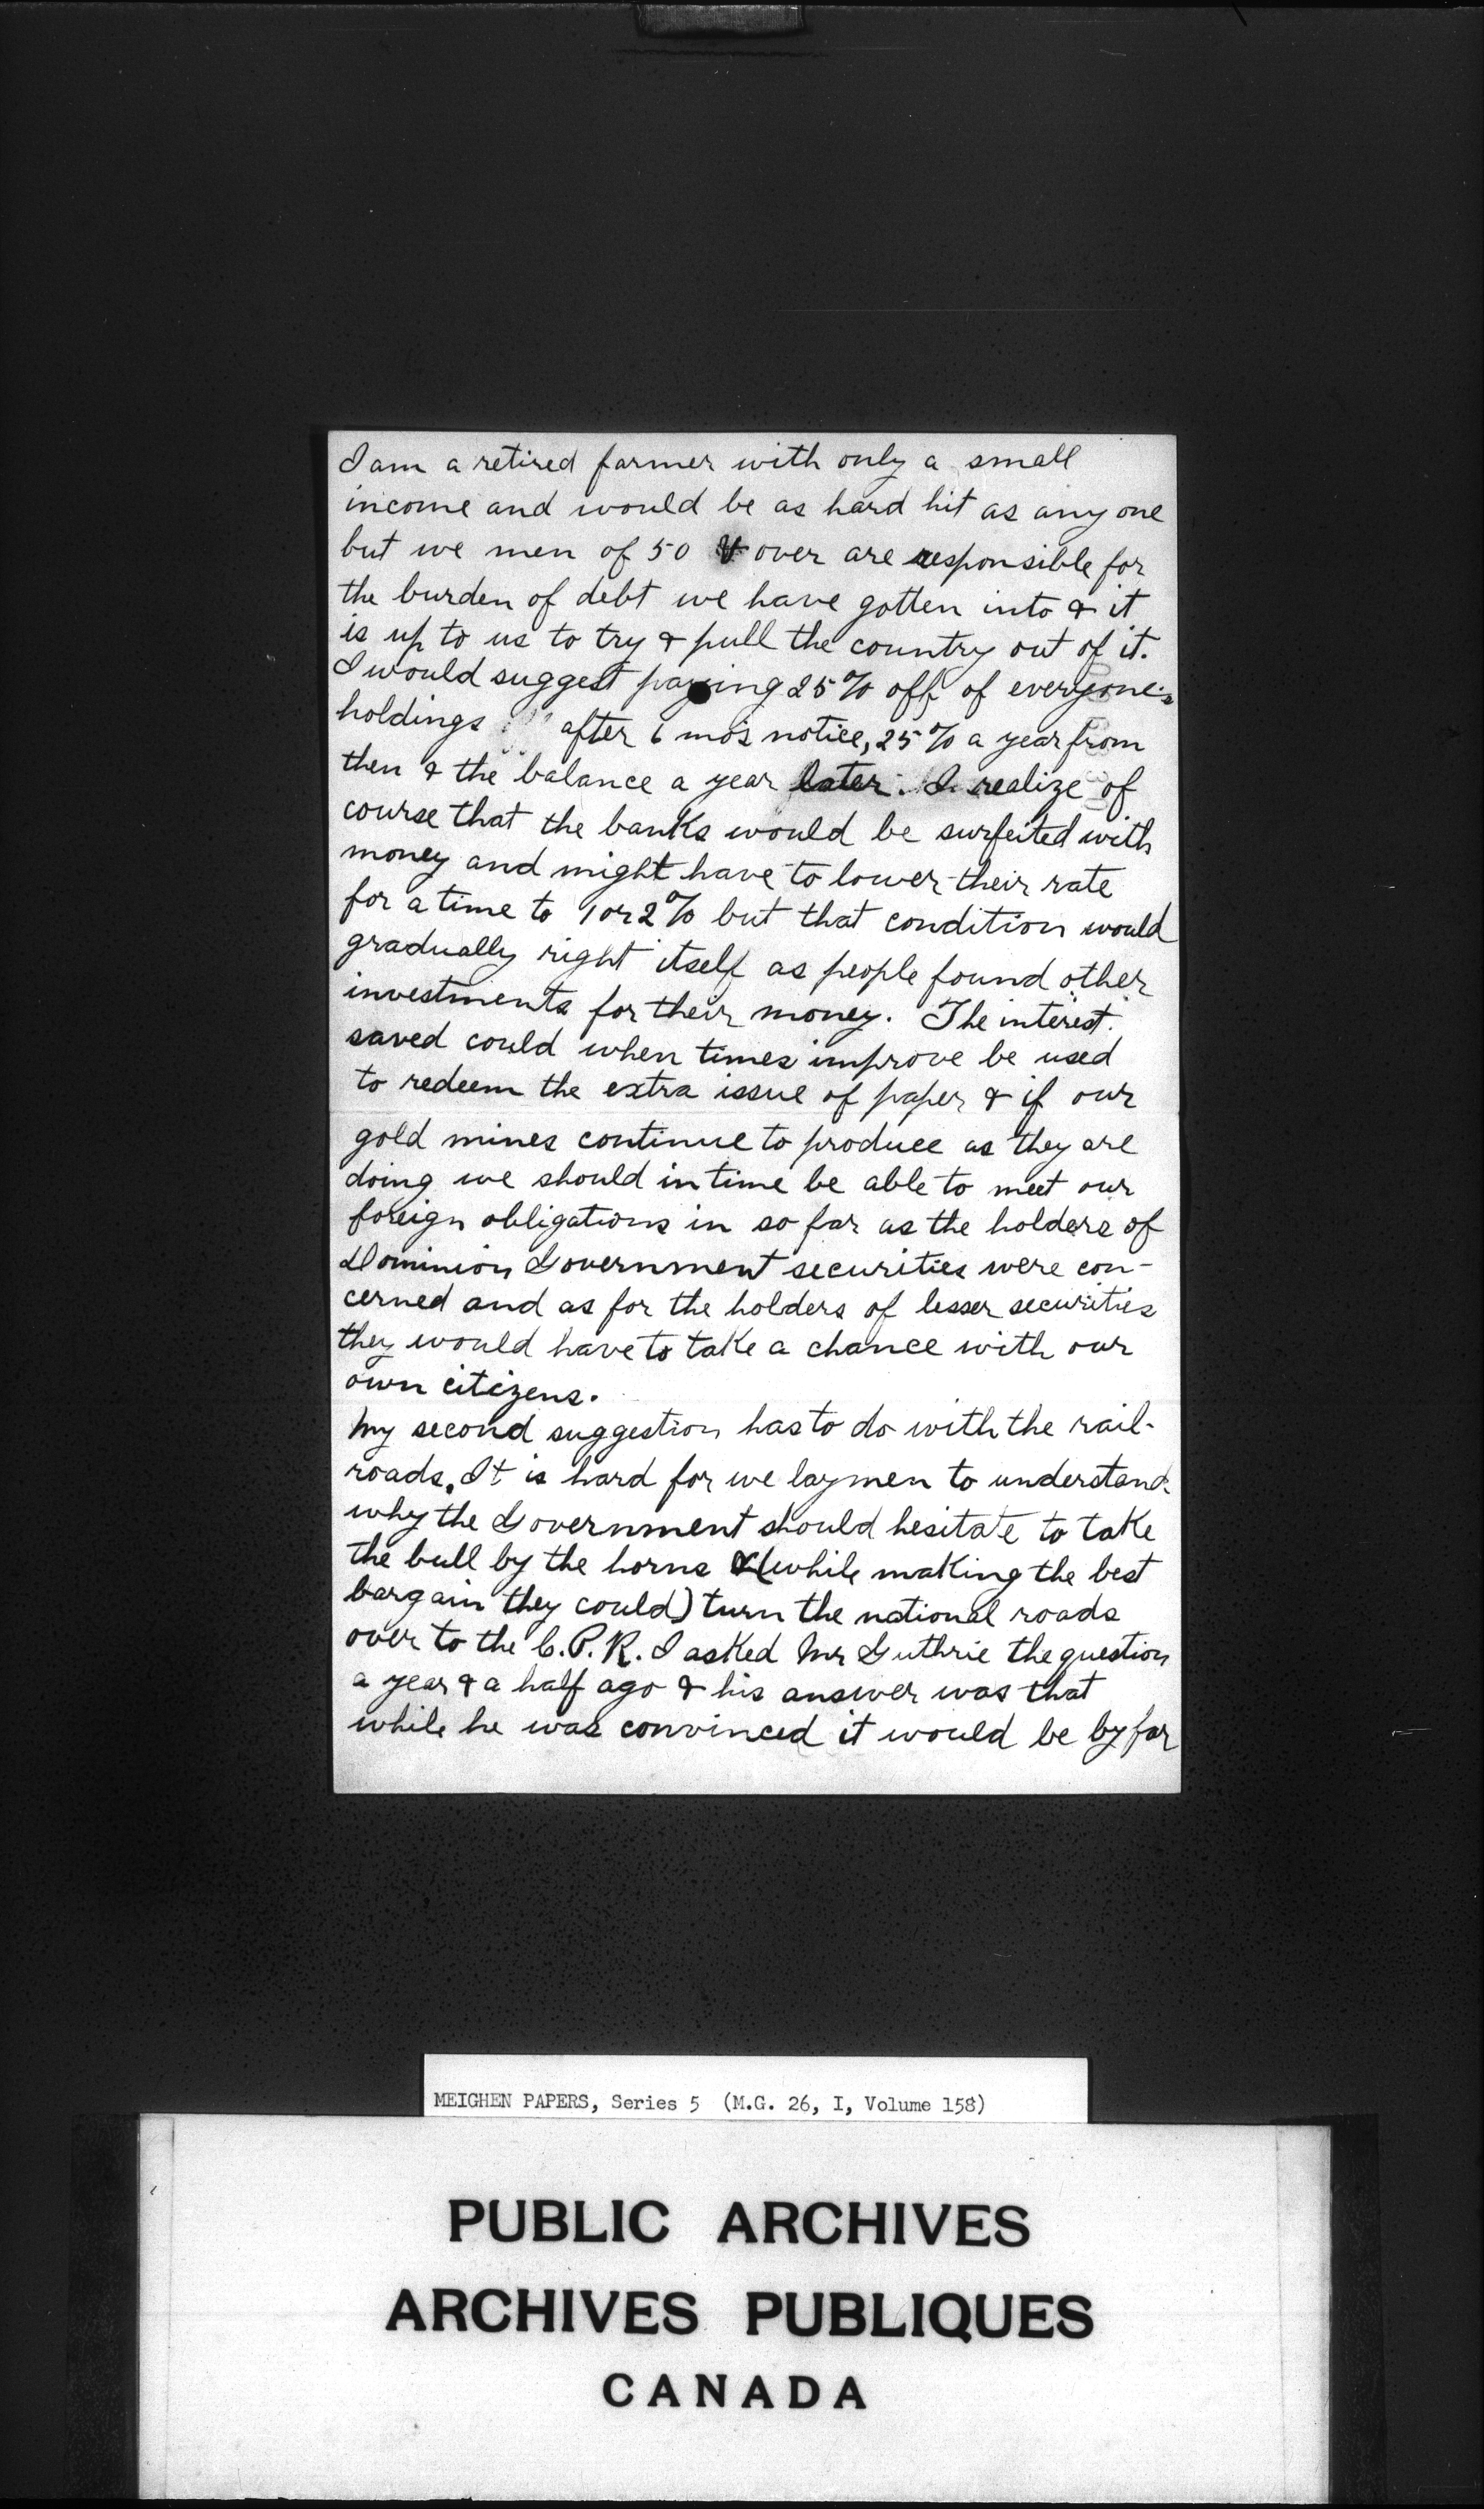 I am a retired farmer with only a small
income and would be as hard hit as any one
but we men of 50 & over are responsible for
the burden of debt we have gotten into & it
is up to us to try & pull the country out of it.
I would suggest paying 25% off of everyone's
holdings after 6 mo's notice, 25% a year from
then & the balance a year later. I realize of
course that the banks would be surfeited with
money and might have to lower their rate
for a time to 1 or 2% but that condition would
gradually right itself as people found other
investments for their money. The interest
saved could when times improve be used
to redeem the extra issue of paper & if our
gold mines continue to produce as they are
doing we should in time be able to meet our
foreign obligations in so far as the holders of
Dominion Government securities were con-
cerned and as for the holders of lesser securities
they would have to take a chance with our
own citizens.
My second suggestion has to do with the rail-
roads. It is hard for we laymen to understand
why the Government should hesitate to take
the bull by the horns & (while making the best
bargain they could) turn the national roads
over to the C.P.R. I asked Mr Guthrie the question
a year & a half ago & his answer was that
while he was convinced it would be by far
MEIGHEN PAPERS, Series 5 (M.G. 26, I, Volume 158)
PUBLIC ARCHIVES
ARCHIVES PUBLIQUES
CANADA